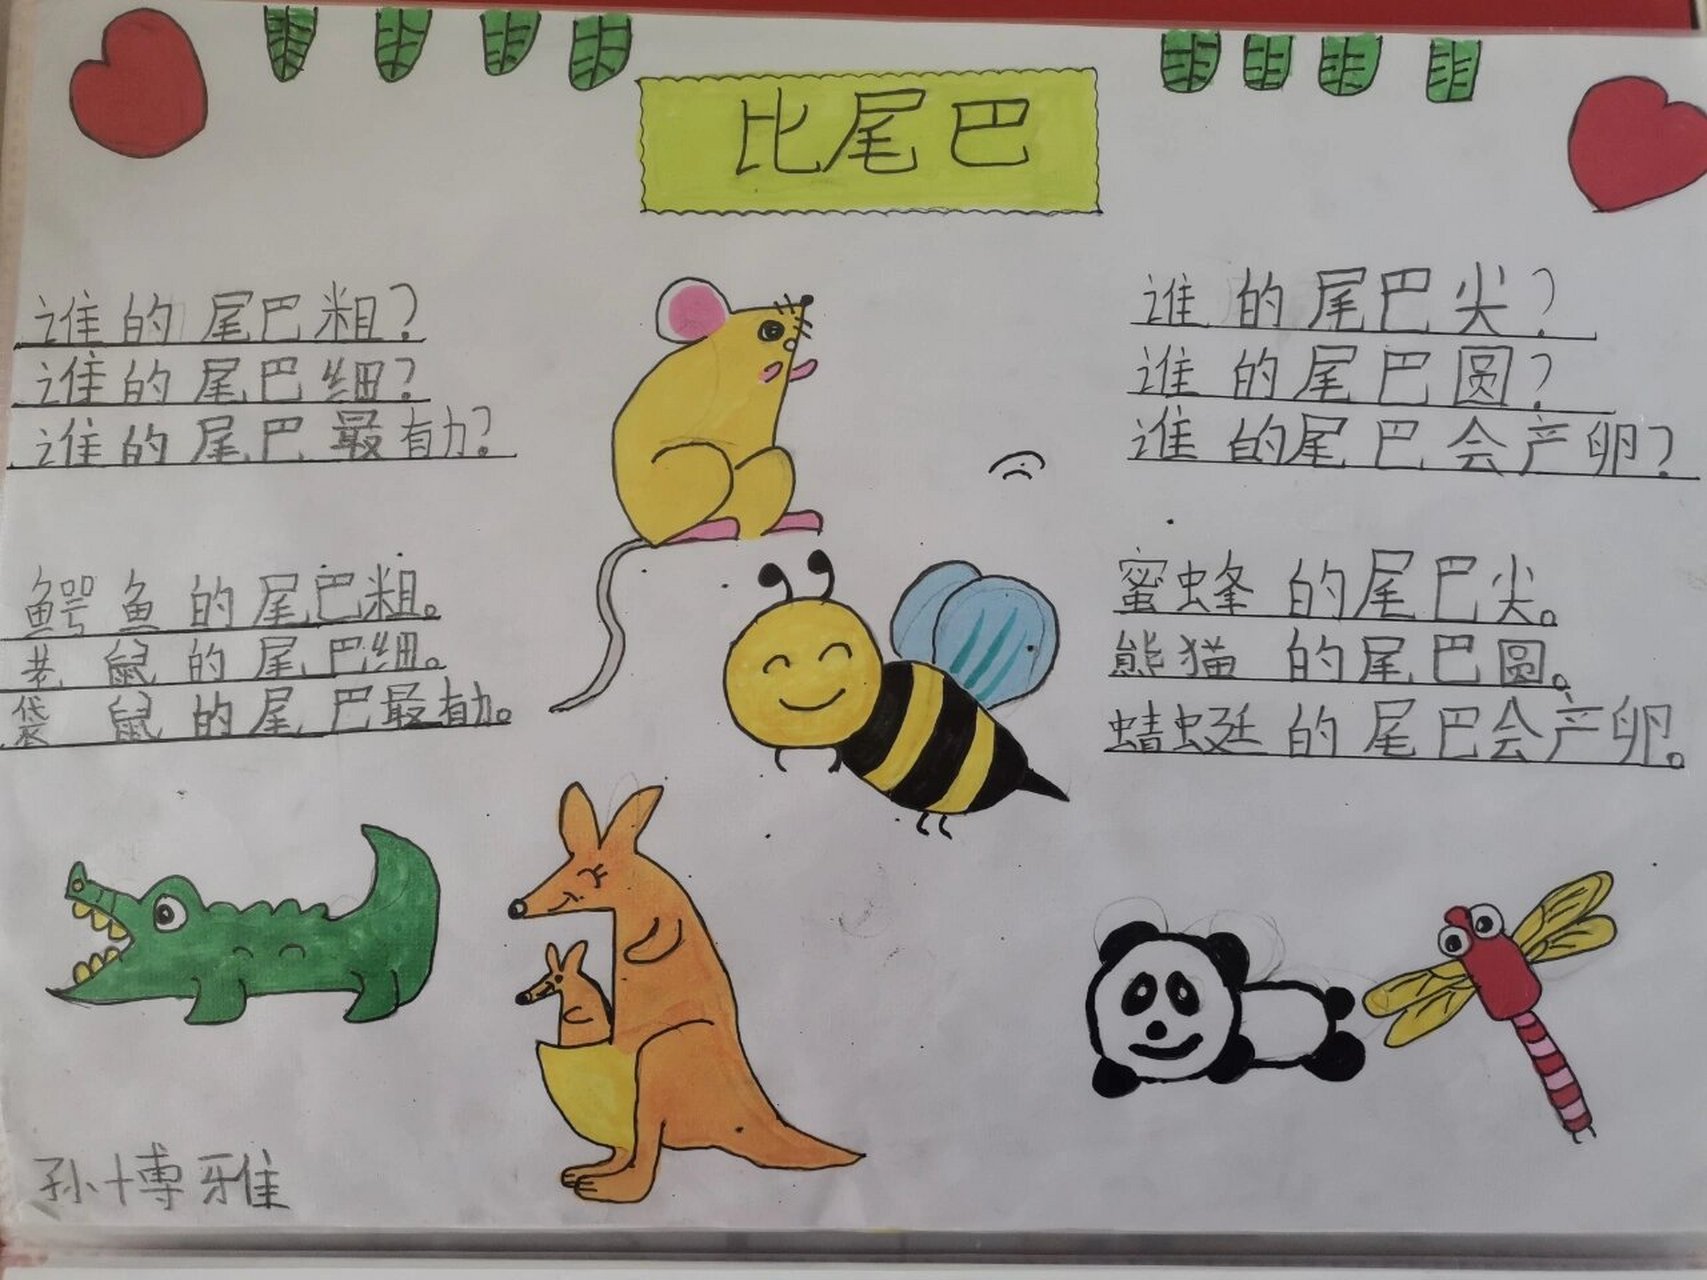 比尾巴
谁的尾巴粗?
谁的尾巴细?
谁的尾巴最有力?
鳄鱼的尾巴粗。
老鼠的尾巴细。
袋鼠的尾巴最有力。
谁的尾巴尖?
谁的尾巴圆?
谁的尾巴会产卵?
蜜蜂的尾巴尖。
熊猫的尾巴圆。
蜻蜓的尾巴会产卵。
孙博雅